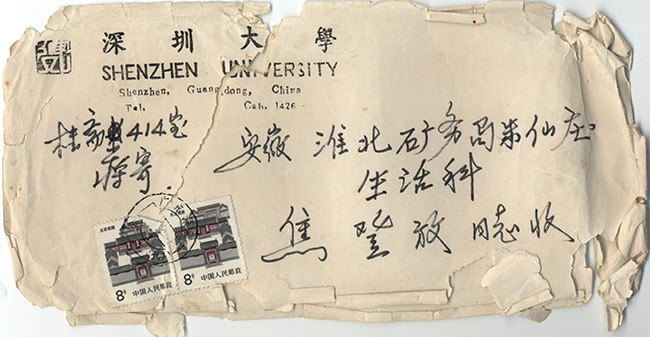 深圳大學
SHENZHEN UNIVERSITY
Shenzhen, Guangdong, China
Tel. Cab. 1436
桂斋414室
寄
安徽 淮北矿务局朱仙庄
生活科
焦登放 同志收
北京民居
8分 中国人民邮政
8分 中国人民邮政